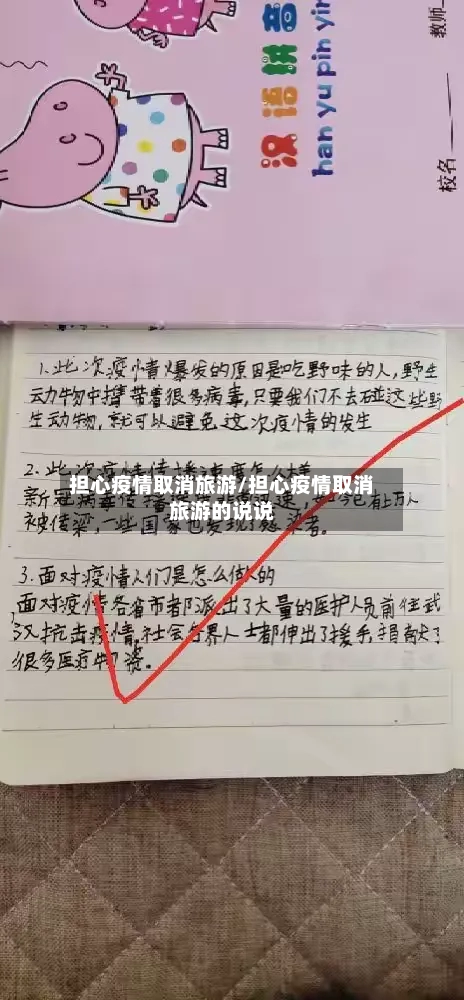 汉语拼音
han yu pin yin
教师
校名
1.此次疫情爆发的原因是吃野味的人,野生
动物中携带着很多病毒,只要我们不去碰这些野
生动物,就可以避免这次疫情的发生
2.此次疫情传播速度怎么样
担心疫情取消旅游/担心疫情取消
旅游的说说
新冠病毒传播 速,已有上万人
被传染,一些国家也发现了感染者。
3.面对疫情人们是怎么做的
面对疫情各省市都派出了大量的医护人员前往武
汉抗击疫情,社会各界人士都伸出了援手捐献了
很多医疗物资。